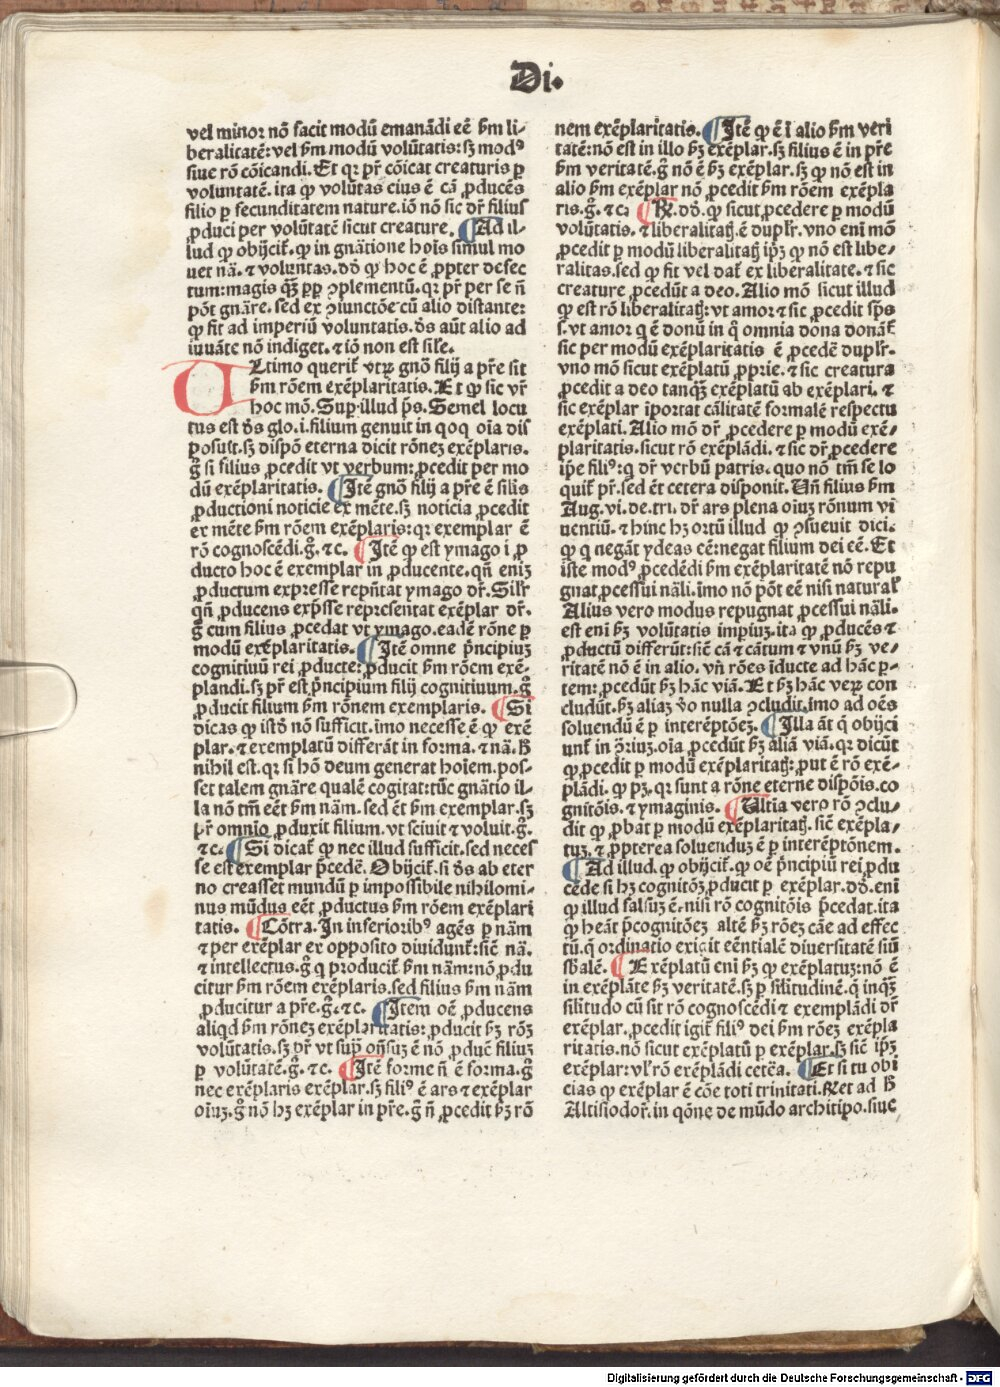 Di.
vel minor nō facit modū emanādi eē ẜm li-
beralitatē: vel ẜm modū volūtatis: sꝫ modꝰ
siue rō cōicandi. Et qꝛ pr̄ cōicat creaturis ꝑ
voluntatē. ita ꝙ volūtas eius ē cā ꝓducēs
filio ꝑ fecunditatem nature. iō nō sic dr̄ filius
ꝓduci per volūtatē sicut creature. ¶Ad il-
lud ꝙ obijcit̃. ꝙ in gnātione hoīs simul mo
uet nā. ⁊ voluntas. dō ꝙ hoc ē ꝓpter defec
tum: magis qꝫ̄ ꝓp ꝯplementū. qꝛ pr̄ per se n̄
pōt gnāre. sed ex ꝯiunctōe cū alio distante:
ꝙ fit ad imperiū voluntatis. ds̄ aūt alio ad
iuuāte nō indiget. ⁊ iō non est sil̄e.
ULtimo querit̃ vtꝝ gnō filij a pr̄e sit
ẜm rōem exēplaritatis. Et ꝙ sic vr̄
hoc mō. Suꝑ illud ps̄. Semel locu
tus est ds̄ glo. i. filium genuit in quo oīa dis
posuit. sꝫ dispō eterna dicit rōneꝫ exēplaris.
g̊ si filius ꝓcedit vt verbum: ꝓcedit per mo
dū exēplaritatis. ¶Itē gnō filij a pr̄e ē silis
ꝓductioni noticie ex mēte. sꝫ noticia ꝓcedit
ex mēte ẜm rōem exēplaris: qꝛ exemplar ē
rō cognoscēdi. g̊. ⁊c. ¶Itē ꝙ est ymago i ꝓ
ducto hoc ē exemplar in ꝓducente. qn̄ enīꝫ
ꝓductum expresse repn̄tat ymago dr̄. Silr̄
qn̄ ꝓducens exp̄sse representat exēplar dr̄.
g̊ cum filius ꝓcedat vt ymago. eadē rōne ꝑ
modū exēplaritatis. ¶Itē omne p̄ncipiuꝫ
cognitiuū rei ꝓducte: ꝓducit ẜm rōem exē-
plandi. sꝫ pr̄ est p̄ncipium filij cognitiuum. g̊
ꝓducit filium ẜm rōnem exemplaris. ¶Si
dicas ꝙ istð nō sufficit. imo necesse ē ꝙ exē
plar. ⁊ exemplatū differāt in forma. ⁊ nā. H̄
nihil est. qꝛ si hō deum generat hoīem. pos-
set talem gnāre qualē cogitat: tūc gnātio il-
la nō tm̄ eēt ẜm nām. sed ēt ẜm exemplar. sꝫ
pr̄ omnīo ꝓduxit filium. vt sciuit ⁊ voluit. g̊.
⁊c. ¶Si dicat̃ ꝙ nec illud sufficit. sed neces
se est exemplar p̄cedē. Obijcit̃. si ds̄ ab eter
no creasset mundū ꝑ impossibile nihilomi-
nus mūdus eēt ꝓductus ẜm rōem exēplari
tatis. ¶Cōtra. In inferioribꝰ agēs ꝑ nām
⁊ per exēplar ex opposito diuidunt̃: sic̄ nā.
⁊ intellectus. g̊ q producit̃ ẜm nām: nō ꝓdu
citur ẜm rōem exēplaris. sed filius ẜm nām
ꝓducitur a pr̄e. g̊. ⁊c. ¶Item oē ꝓducens
aliqd ẜm rōneꝫ exēplaritatis: ꝓducit ẜꝫ rōꝫ
volūtatis. sꝫ pr̄ vt suꝑ onsuꝫ ē nō ꝓduc̄ filiuꝫ
ꝑ volūtatē. g̊. ⁊c. ¶Itē forme n̄ ē forma. g̊
nec exēplaris exēplar. sꝫ filiꝰ ē ars ⁊ exēplar
oīuꝫ. g̊ nō hꝫ exēplar in pr̄e. g̊ n̄ ꝓcedit ẜꝫ rō
nem exēplaritatis. ¶Itē ꝙ ē ī alio ẜm veri
tatē: nō est in illo ẜꝫ exēplar. sꝫ filius ē in pr̄e
ẜm veritatē. g̊ nō ē ẜꝫ exēplar. sꝫ ꝙ nō est in
alio ẜm exēplar nō ꝓcedit ẜm rōem exēpla
ris. g̊. ⁊c. ¶R̄. dō. ꝙ sicut ꝓcedere ꝑ modū
volūtatis. ⁊ liberalitatꝭ. ē duplr̄. vno enī mō
ꝓcedit ꝑ modū liberalitatꝭ ip̄ꝫ ꝙ nō est libe-
ralitas. sed ꝙ fit vel dat̃ ex liberalitate. ⁊ sic
creature ꝓcedūt a deo. Alio mō sicut illud
ꝙ est rō liberalitatꝭ: vt amor ⁊ sic ꝓcedit sp̄s
s. vt amor q ē donū in q̊ omnia dona donāt̃
sic per modū exēplaritatis ē ꝓcedē duplr̄.
vno mō sicut exēplatū ꝓprie. ⁊ sic creatura
ꝓcedit a deo tanqꝫ exēplatū ab exēplari. ⁊
sic exēplar īportat cālitatē formalē respectu
exēplati. Alio mō dr̄ ꝓcedere ꝑ modū exē-
plaritatis. sicut rō exēplādi. ⁊ sic dr̄ ꝓcedere
ip̄e filiꝰ: q dr̄ verbū patris. quo nō tm̄ se lo
quit̃ pr̄. sed ēt cetera disponit. Un̄ filius ẜm
Aug. vi. de. tri. dr̄ ars plena oīuꝫ rōnum vi
uentiū. ⁊ hinc hꝫ ortū illud ꝙ ꝯsueuit dici.
ꝙ q negāt ydeas eē: negat filium dei eē. Et
iste modꝰ ꝓcedēdi ẜm exēplaritatē nō repu
gnat ꝓcessui nāli. imo nō pōt eē nisi natural̃
Alius vero modus repugnat ꝓcessui nāli.
est enī ẜꝫ volūtatis impiuꝫ. ita ꝙ ꝓducēs ⁊
ꝓductū differūt: sic̄ cā ⁊ cātum ⁊ vnū ẜꝫ ve-
ritatē nō ē in alio. vn̄ rōes īducte ad hāc ꝑ-
tem: ꝓcedūt ẜꝫ hāc viā. Et ẜꝫ hāc veꝝ con
cludūt. ẜꝫ aliaꝫ v̊o nulla ꝯcludit. imo ad oēs
soluendū ē ꝑ interēptōeꝫ. ¶Illa āt q̄ obijci
unt̃ in ꝯ̄riuꝫ. oīa ꝓcedūt ẜꝫ aliā viā. qꝛ dicūt
ꝙ ꝓcedit ꝑ modū exēplaritatꝭ: ꝓut ē rō exē-
plādi. ꝙ pꝫ. qꝛ sunt a rōne eterne dispōis. co
gnitōis. ⁊ ymaginis. ¶Ultīa vero rō ꝯclu-
dit ꝙ ꝓbat ꝑ modū exēplaritatꝭ. sic̄ exēpla-
tuꝫ. ⁊ ꝓpterea soluenduꝫ ē ꝑ interēptōnem.
¶Ad illud. ꝙ obijcit̃. ꝙ oē p̄ncipiū rei ꝓdu
cēde si hꝫ cognitōꝫ ꝓducit ꝑ exēplar. dō. enī
ꝙ illud falsuꝫ ē. nisi rō cognitōis p̄cedat. ita
ꝙ heāt p̄cognitōeꝫ altē ẜꝫ rōeꝫ cāe ad effec
tū. q̄ ordinatio exigit eēntialē diuersitatē siū
sb̄alē. ¶Exēplatū enī ẜꝫ ꝙ exēplatuꝫ: nō ē
in exēplāte ẜꝫ veritatē. sꝫ ꝑ silitudinē. q̄ inqꝫ
silitudo cū sit rō cognoscēdi ⁊ exemplādi dr̄
exēplar. ꝓcedit igit̃ filiꝰ dei ẜm rōeꝫ exēpla
ritatis. nō sicut exēplatū ꝑ exēplar. sꝫ sic̄ ip̄ꝫ
exēplar: vl̃ rō exēplādi cetēa. ¶Et si tu obi
cias ꝙ exēplar ē cōe toti trinitati. Ret ad H̄
Altisiodor̄. in qōne de mūdo architipo. siue